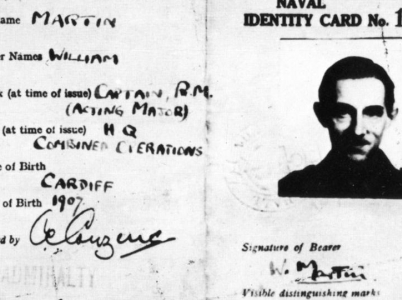 ame MARTIN
r Names WILLIAM
k (at time of issue) CAPTAIN, R.M.
(ACTING MAJOR)
(at time of issue) H Q
COMBINED OPERATIONS
e of Birth
CARDIFF
of Birth 1907
d by
ADMIRALTY
NAVAL
IDENTITY CARD No. 1
Signature of Bearer
W. Martin
Visible distinguishing marks